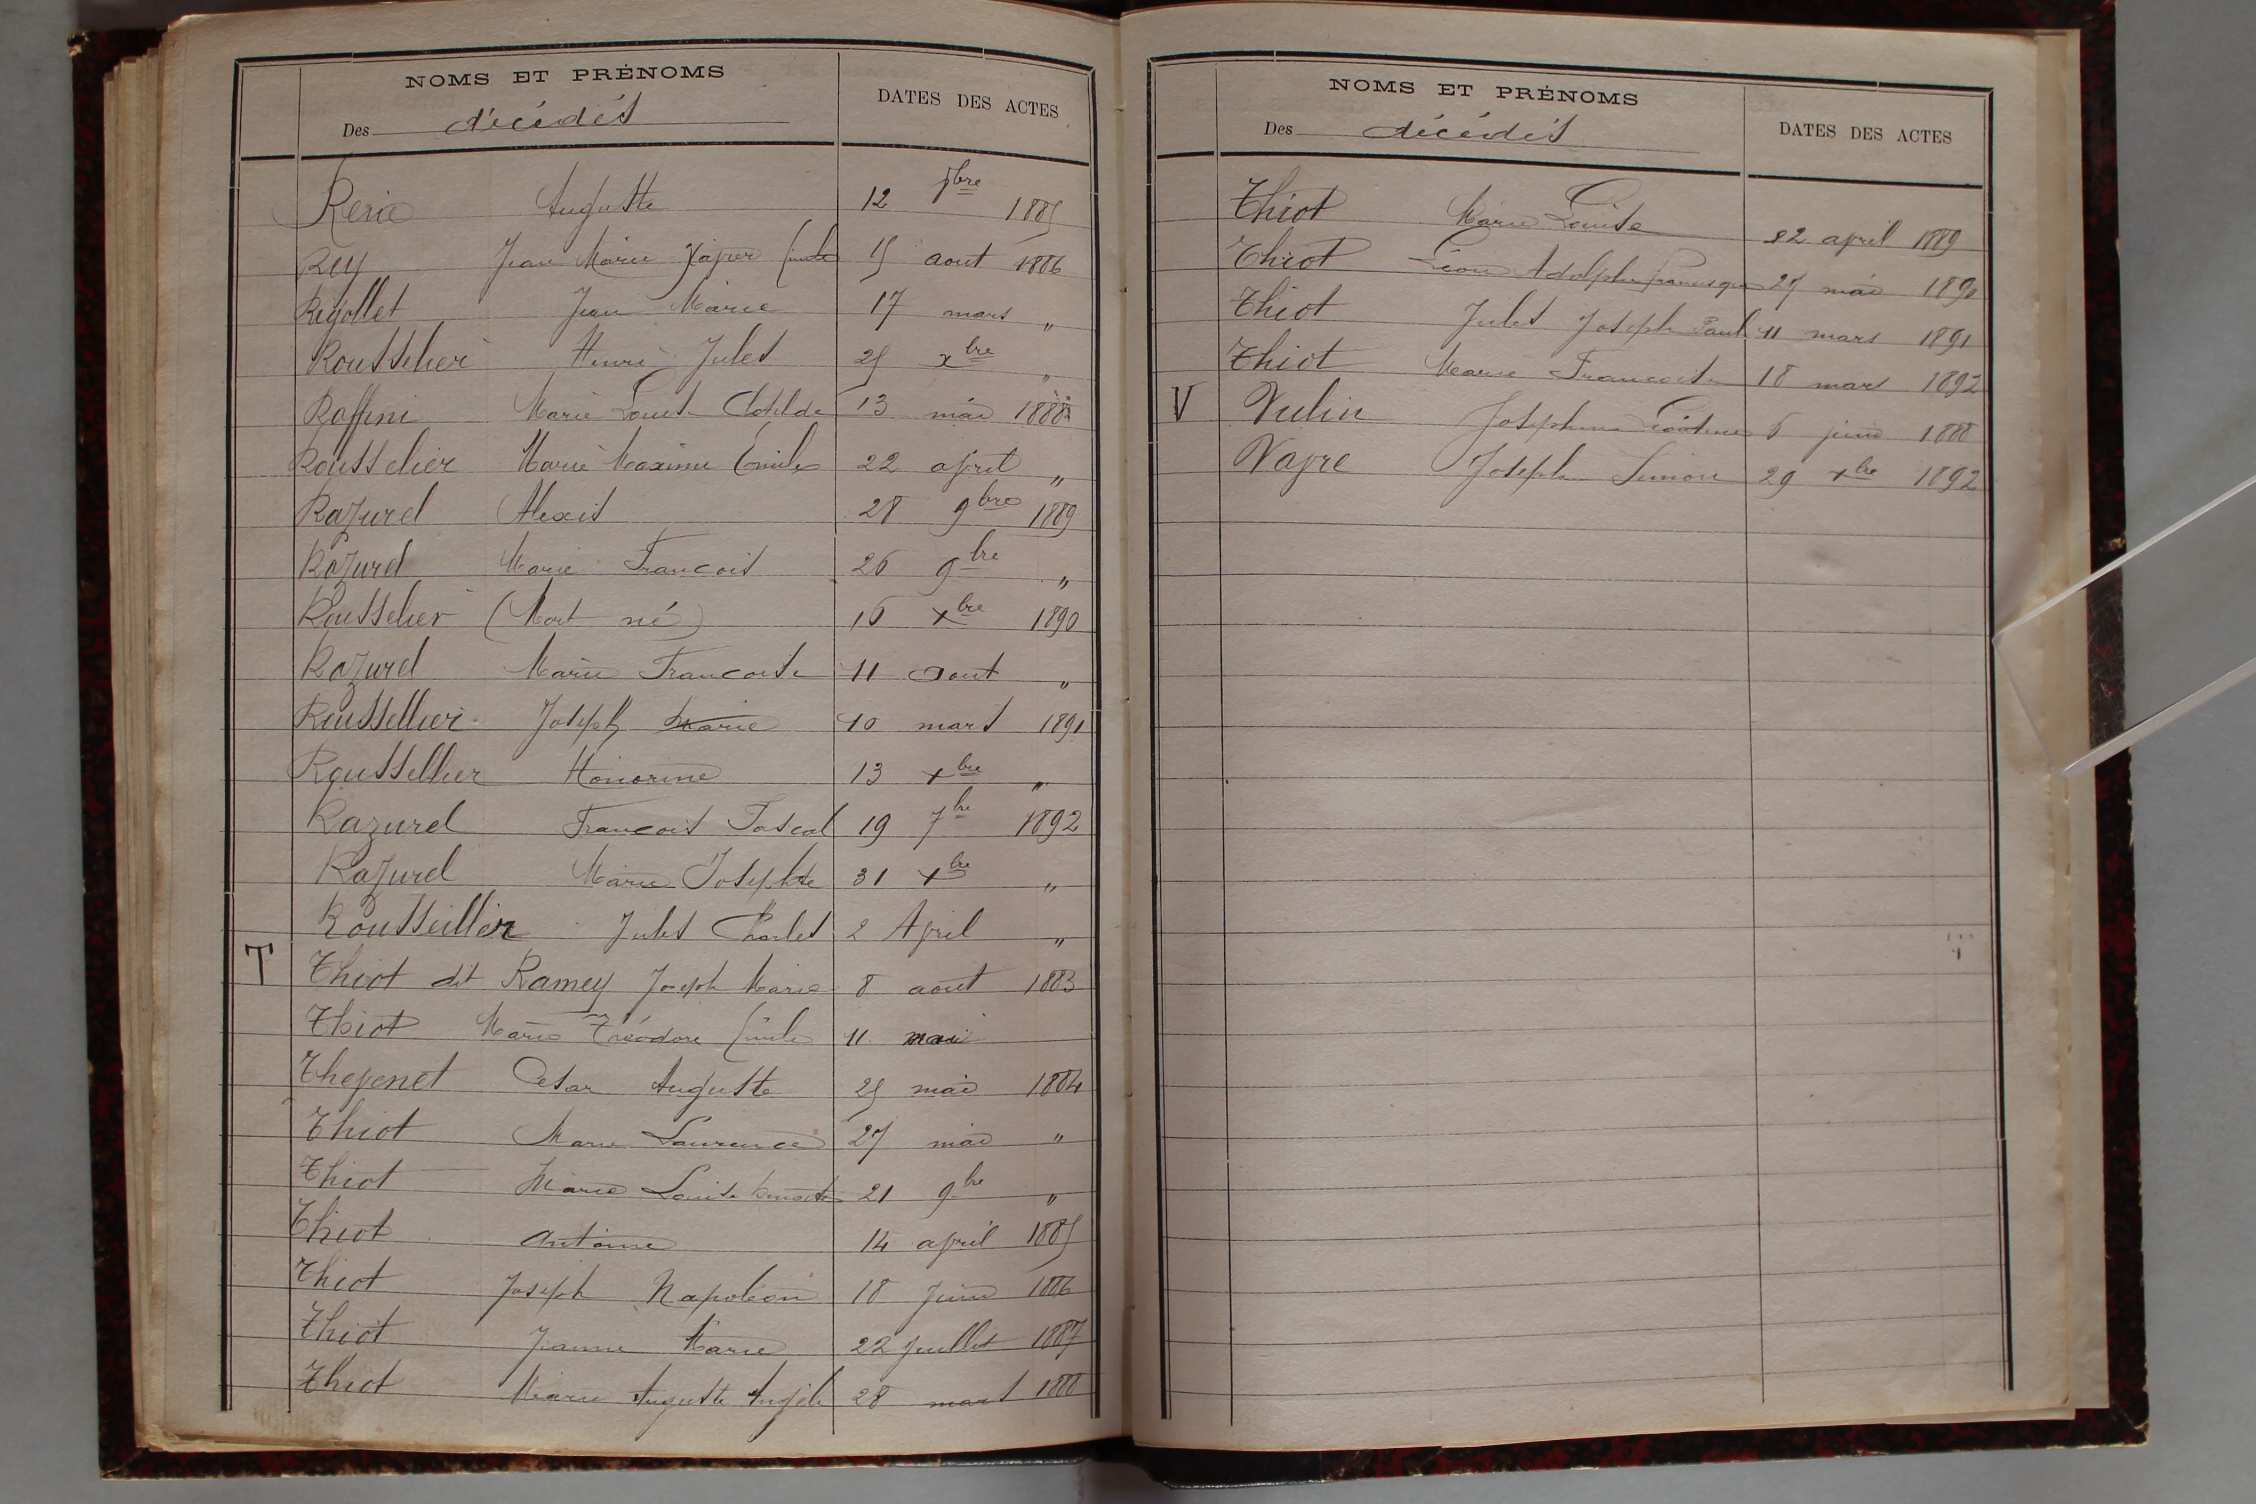 NOMS ET PRÉNOMS
Des décédés
DATES DES ACTES
Auguste 12 bre 1885
Rey Jean Marie Xavier Emile 15 aout 1886
Rigollet Jean Marie 17 mars "
Rousselier Henri Jules 25 xbre "
Raffini Marie Louise Clotilde 13 mai 1888
Rousselier Marie Maxime Emile 22 april "
Razurel Alexis 28 9bre 1889
Razurel Marie Francois 26 9bre "
Rousselier (Mort né) 16 xbre 1890
Razurel Marie Francoise 11 aout "
Roussellier Joseph Marie 10 mars 1891
Roussellier Honorine 13 xbre "
Razurel Francois Pascal 19 7bre 1892
Razurel Marie Josephte 31 xbre "
Rousseillier Jules Charles 2 April "
T Thiot dit Ramey Joseph Marie 8 aout 1883
Thiot Marie Théodore Emile 11 mai
Thevenet Cesar Auguste 25 mai 1884
Thiot Marie Laurence 27 mai "
Thiot Marie Louise 21 9bre "
Thiot Antoine 14 april 1885
Thiot Joseph Napoléon 18 juin 1886
Thiot Jeanne Marie 22 juillet 1887
Thiot Marie Auguste Angèle 28 mars 1888
NOMS ET PRÉNOMS
Des décédés
DATES DES ACTES
Thiot Marie Louise 22 april 1889
Thiot Léon Adolphe Francisque 27 mai 1890
Thiot Jules Joseph Paul 11 mars 1891
Thiot Marie Francoise 18 mars 1892
V Vulin Josephine Léontine 6 juin 1888
Vayre Joseph Simon 29 xbre 1892